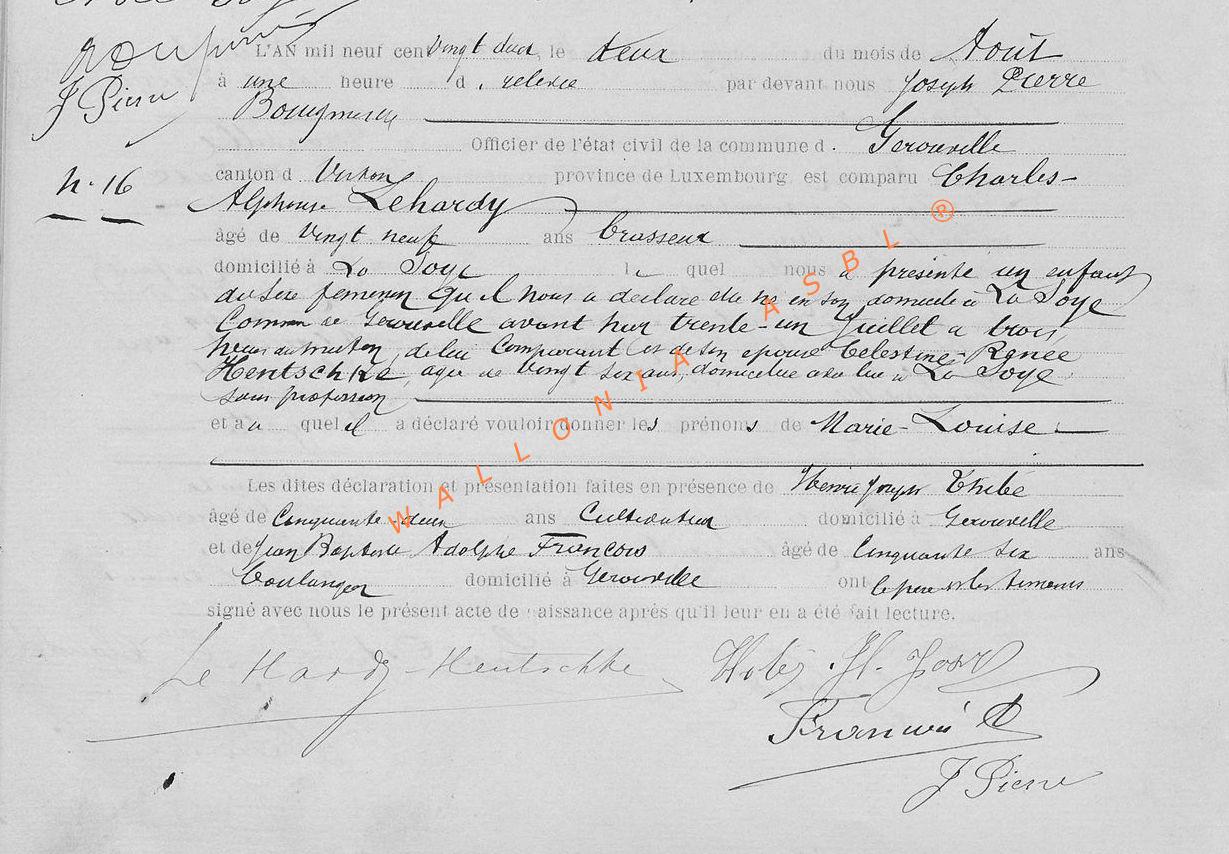 J Pierre
N. 16
L'AN mil neuf cent vingt deux le deux du mois de Août
à une heure d . relevée par devant nous Joseph Pierre
Bourgmestre
Officier de l'état civil de la commune d . Gerouville
canton d Virton province de Luxembourg est comparu Charles-
Alphonse Lehardy
âgé de vingt neuf ans brasseur
domicilié à La Soye le quel nous a présenté un enfant
du sexe feminin qu'il nous a declaré être né en son domicile à La Soye
Commune de Gerouville avant hier trente-un Juillet a trois
heures du matin, de lui Comparant et de son epouse Celestine-Renée
Hentschke, agée de vingt six ans, domiciliée avec lui à La Soye
sans profession
et au quel il a déclaré vouloir donner les prénoms de Marie-Louise
Les dites déclaration et présentation faites en présence de Henri Joseph
âgé de Cinquante deux ans Cultivateur domicilié à Gerouville
et de Jean Baptiste Adolphe François âgé de Cinquante six ans
boulanger domicilié à Gerouville ont le père et les temoins
signé avec nous le présent acte de naissance après qu'il leur en a été fait lecture.
Le Hardy-Hentschke
François A
J Pierre
WALLONIA ASBL ®